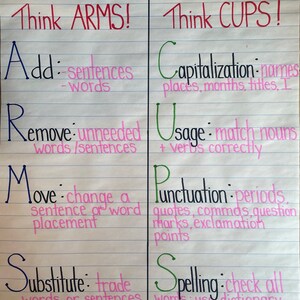 Think ARMS!
Add: sentences
- words
Remove: unneeded
words/sentences
Move: change a
sentence or word
placement
Substitute: trade
words or sentences
Think CUPS!
Capitalization: names
places, months, titles, I
Usage: match nouns
+ verbs correctly
Punctuation: periods,
quotes, commas, question
marks, exclamation
points
Spelling: check all
words, use dictionary